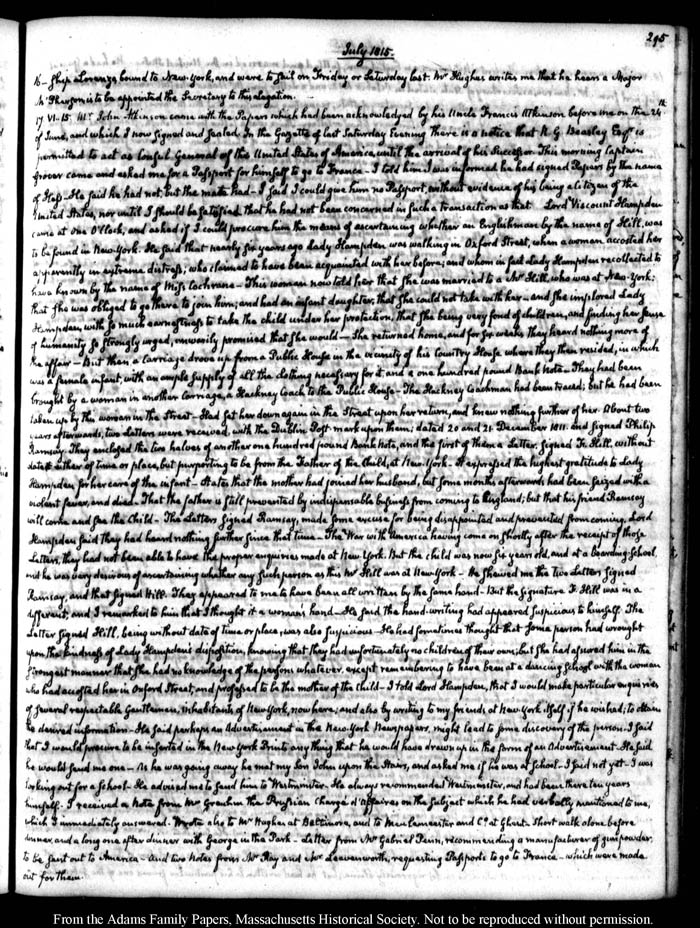 295
July 1815.
16 — Ship Lorenzo, bound to New-York, and were to sail on Friday or Saturday last. Mr Hughes writes me that he hears a Major
McPherson is to be appointed the Secretary to this Legation.
17. VI:15. Mr. John Atkinson came with the Papers which had been acknowledged by his Uncle Francis Atkinson before me on the 24th
of June, and which I now signed and sealed. In the Gazette of last Saturday Evening there is a notice that R. G. Beasley Esqr is
permitted to act as Consul General of the United States of America, until the arrival of his Successor. This morning Captain
Grover came and asked me for a Passport for himself to go to France — I told him I was informed he had signed Papers by the name
of — He said he had not, but the mate had — I said I could give him no Passport, without evidence of his being a Citizen of the
United States, nor until I should be satisfied that he had not been concerned in such a transaction as that. Lord Viscount Hampden
came at one O'Clock, and asked if I could procure him the means of ascertaining whether an Englishman by the name of Hill, was
to be found in New-York. He said that nearly six years ago Lady Hampden was walking in Oxford Street, when a woman accosted her
apparently in extreme distress, who claimed to have been acquainted with her before; and whom in fact Lady Hampden recollected to
have known by the name of Miss Cochrane — This woman now told her that she was married to a Mr Hill, who was at New-York;
that she was obliged to go there to join him; and had an infant daughter, that she could not take with her — and she implored Lady
Hampden with so much earnestness to take the child under her protection, that she being very fond of children, and finding her sense
of humanity so strongly urged, unwarily promised that she would — She returned home, and for six weeks they heard nothing more of
the affair — But then a Carriage drove up from a Public House in the vicinity of his Country House where they then resided, in which
was a female infant, with an ample supply of all the clothing necessary for it, and a one hundred pound Bank Note — They had been
brought by a woman in another carriage, a Hackney Coach to the Public House — The Hackney Coachman had been traced; but he had been
taken up by this woman in the Street — Had set her down again in the Street upon her return, and knew nothing further of her. About two
years afterwards, two Letters were received, with the Dublin Post mark upon them; dated 20 and 21 December 1811. and signed Philip
Ramsay. They enclosed the two halves of another one hundred pound Bank Note, and the first of them a Letter, signed F. Hill, without
date either of time or place, but purporting to be from the Father of the Child, at New-York. It expressed the highest gratitude to Lady
Hampden for her care of the infant — States that the mother had joined her husband, but some months afterwards had been seized with a
violent fever, and died — That the father is still prevented by indispensable business from coming to England; but that his friend Ramsay
will come and see the Child — The Letters signed Ramsay, made some excuse for being disappointed and prevented from coming. Lord
Hampden said they had heard nothing further since that time — The War with America having come on shortly after the receipt of those
Letters, they had not been able to have the proper enquiries made at New York. But the child was now six years old, and at a boarding School,
and he was very desirous of ascertaining whether any such person as this Mr Hill was at New-York — He shewed me the two Letters signed
Ramsay, and that signed Hill. They appeared to me to have been all written by the same hand — But the signature F. Hill was in a
different; and I remarked to him that I thought it a woman's hand — He said the hand-writing had appeared suspicious to himself. The
Letter signed Hill, being without date of time or place, was also suspicious — He had sometimes thought that some person had wrought
upon the kindness of Lady Hampden's disposition, knowing that they had unfortunately no children of their own; but she had assured him in the
strongest manner that she had no knowledge of the persons whatever, except remembering to have been at a dancing School with the woman
who had accosted her in Oxford Street, and professed to be the mother of the child — I told Lord Hampden, that I would make particular enquiries
of several respectable Gentlemen, inhabitants of New York, now here; and also by writing to my friends at New-York itself, if he wished; to obtain
the desired information — He said perhaps an Advertisement in the New-York Newspapers, might lead to some discovery of the person. I said
that I would procure to be inserted in the New York Prints any thing that he would have drawn up in the form of an Advertisement. He said
he would send me one — As he was going away he met my Son John upon the Stairs, and asked me if he was at School — I said not yet — I was
looking out for a School — He advised me to send him to Westminster. He always recommended Westminster, and had been there ten years
himself. I received a Note from Mr Greuhm the Prussian Chargé d'Affaires on the Subject which he had verbally mentioned to me,
which I immediately answered. Wrote also to Mr Hughes at Baltimore, and to Meulemeester and Co. at Ghent. Short walk alone before
dinner, and a long one after dinner with George in the Park — Letter from Mr Gabriel Penn, recommending a manufacturer of gunpowder,
to be sent out to America — And two Notes from Mr Ray and Mr Leavenworth, requesting Passports to go to France — which were made
out for them.
From the Adams Family Papers, Massachusetts Historical Society. Not to be reproduced without permission.